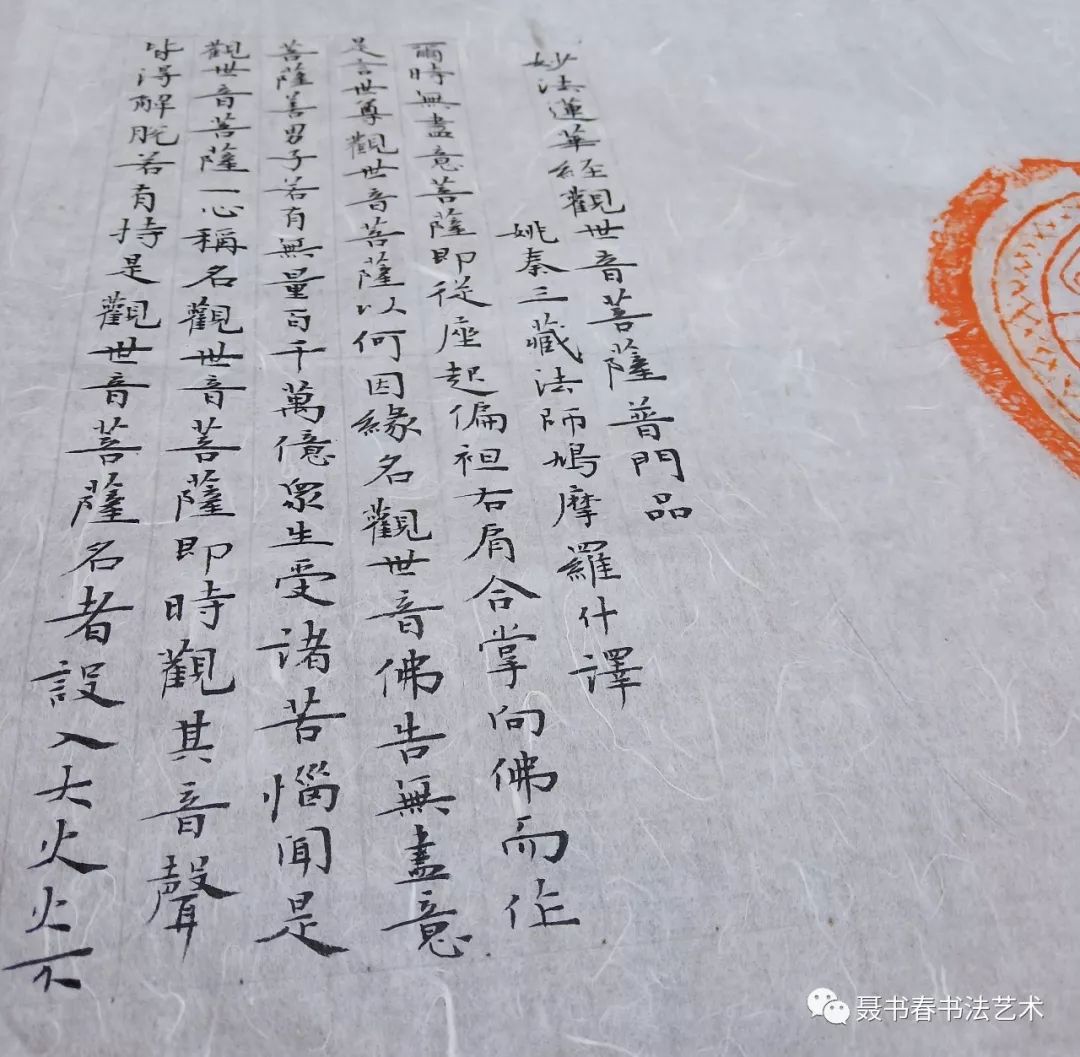 妙法蓮華經觀世音菩薩普門品
姚秦三藏法師鳩摩羅什譯
爾時無盡意菩薩即從座起偏袒右肩合掌向佛而作
是言世尊觀世音菩薩以何因緣名觀世音佛告無盡意
菩薩善男子若有無量百千萬億眾生受諸苦惱聞是
觀世音菩薩一心稱名觀世音菩薩即時觀其音聲
皆得解脫若有持是觀世音菩薩名者設入大火火不
聂书春书法艺术